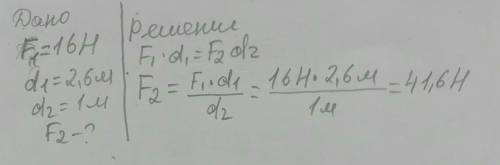 Дано
F1=16Н
d1=2,6м
d2=1м
F2-?
Решение
F1·d1=F2 d2
F2 = F1·d1 / d2 = 16Н·2,6м / 1м = 41,6Н